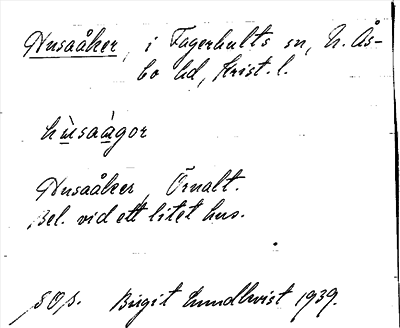 Husaåker, i Fagerhults sn, N. Ås-
bo hd, Krist. l.
hùsaàgor
Husaåker, Ömalt.
Bel. vid ett litet hus.
SOp. Birgit Lundkvist 1939.